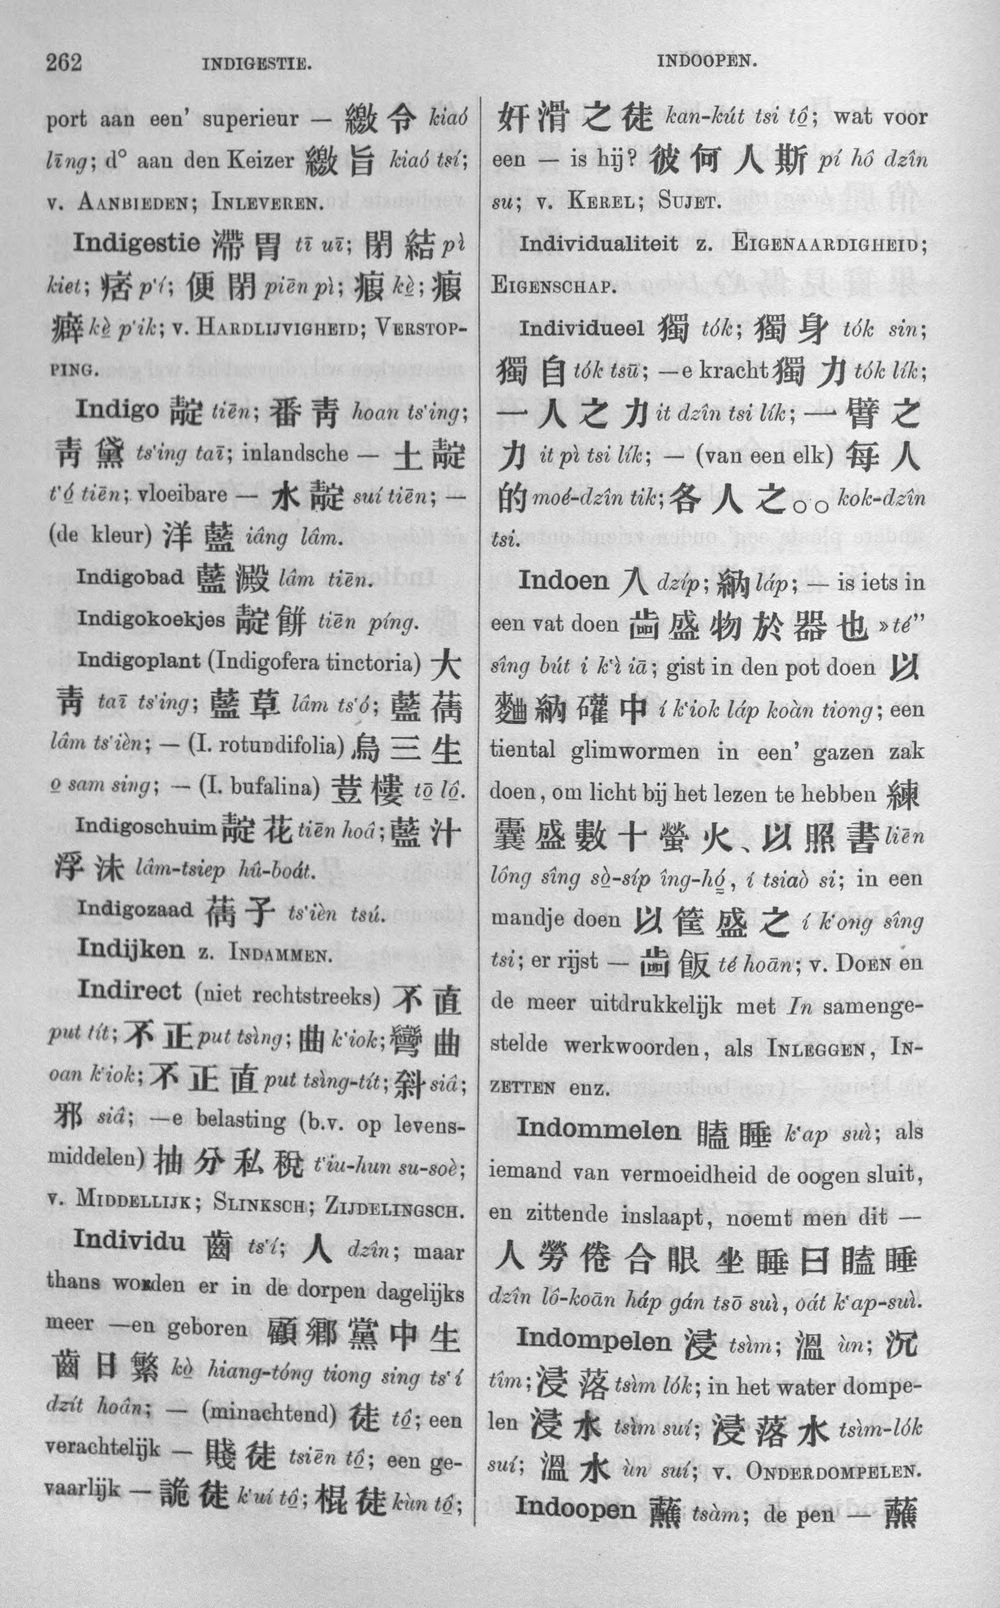 262
INDIGESTIE.
INDOOPEN.
port aan een’ superieur — 繳令 kiaó
līng; d° aan den Keizer 繳旨 kiaó tsí;
v. AANBIEDEN; INLEVEREN.
Indigestie 滯胃 tī uī; 閉結 pì
kiet; 痞 p‘í; 便閉 piēn pì; 瘕 kè; 瘕
癖 kè p‘ik; v. HARDLIJVIGHEID; VERSTOP-
PING.
Indigo 靛 tiēn; 番靑 hoan ts‘ing;
靑黛 ts‘ing taī; inlandsche — 土靛
t‘ó tiēn; vloeibare — 水靛 suí tiēn; —
(de kleur) 洋藍 iâng lâm.
Indigobad 藍澱 lâm tiēn.
Indigokoekjes 靛餅 tiēn píng.
Indigoplant (Indigofera tinctoria) 大
靑 taī ts‘ing; 藍草 lâm ts‘ó; 藍蒨
lâm ts‘ièn; — (I. rotundifolia) 烏三生
o sam sing; — (I. bufalina) 荳樓 tō lô.
Indigoschuim 靛花 tiēn hoâ; 藍汁
浮沫 lâm-tsiep hû-boát.
Indigozaad 蒨子 ts‘ièn tsú.
Indijken z. INDAMMEN.
Indirect (niet rechtstreeks) 不直
put tít; 不正 put tsìng; 曲 k‘iok; 彎曲
oan k‘iok; 不正直 put tsìng-tít; 斜 siâ;
邪 siâ; —e belasting (b.v. op levens-
middelen) 抽分私稅 t‘iu-hun su-soè;
v. MIDDELLIJK; SLINKSCH; ZIJDELINGSCH.
Individu 齒 ts‘í; 人 dzîn; maar
thans worden er in de dorpen dagelijks
meer —en geboren 顧鄉黨中生
齒日繁 kò hiang-tóng tiong sing ts‘í
dzít hoân; — (minachtend) 徒 tô; een
verachtelijk — 賤徒 tsiēn tô; een ge-
vaarlijk — 詭徒 k‘uí tô; 棍徒 kùn tô;
奸滑之徒 kan-kút tsi tô; wat voor
een — is hij? 彼何人斯 pí hô dzîn
su; v. KEREL; SUJET.
Individualiteit z. EIGENAARDIGHEID;
EIGENSCHAP.
Individueel 獨 tók; 獨身 tók sin;
獨自 tók tsū; —e kracht 獨力 tók lík;
一人之力 it dzîn tsi lík; 一臂之
力 it pì tsi lík; — (van een elk) 每人
的 moé-dzîn tik; 各人之○○ kok-dzîn
tsi.
Indoen 入 dzíp; 納 láp; — is iets in
een vat doen 齒盛物於器也 »té”
sîng bút i k‘ì iā; gist in den pot doen 以
麯納礶中 í k‘iok láp koàn tiong; een
tiental glimwormen in een’ gazen zak
doen, om licht bij het lezen te hebben 練
囊盛數十螢火、以照書 liēn
lông sîng sò-síp îng-hó, í tsiaò si; in een
mandje doen 以筐盛之 í k‘ong sîng
tsi; er rijst — 齒飯 té hoān; v. DOEN en
de meer uitdrukkelijk met In samenge-
stelde werkwoorden, als INLEGGEN, IN-
ZETTEN enz.
Indommelen 瞌睡 k‘ap suì; als
iemand van vermoeidheid de oogen sluit,
en zittende inslaapt, noemt men dit —
人勞倦合眼坐睡曰瞌睡
dzîn lô-koān háp gán tsō suì, oát k‘ap-suì.
Indompelen 浸 tsìm; 溫 ùn; 沉
tîm; 浸落 tsìm lók; in het water dompe-
len 浸水 tsìm suí; 浸落水 tsìm-lók
suí; 溫水 ùn suí; v. ONDERDOMPELEN.
Indoopen 蘸 tsàm; de pen — 蘸